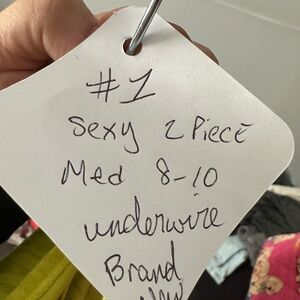 #1
Sexy 2 Piece
Med 8-10
underwire
Brand
New